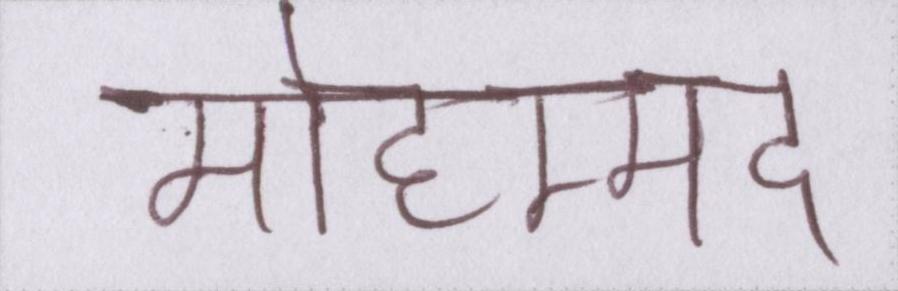 मोहम्मद